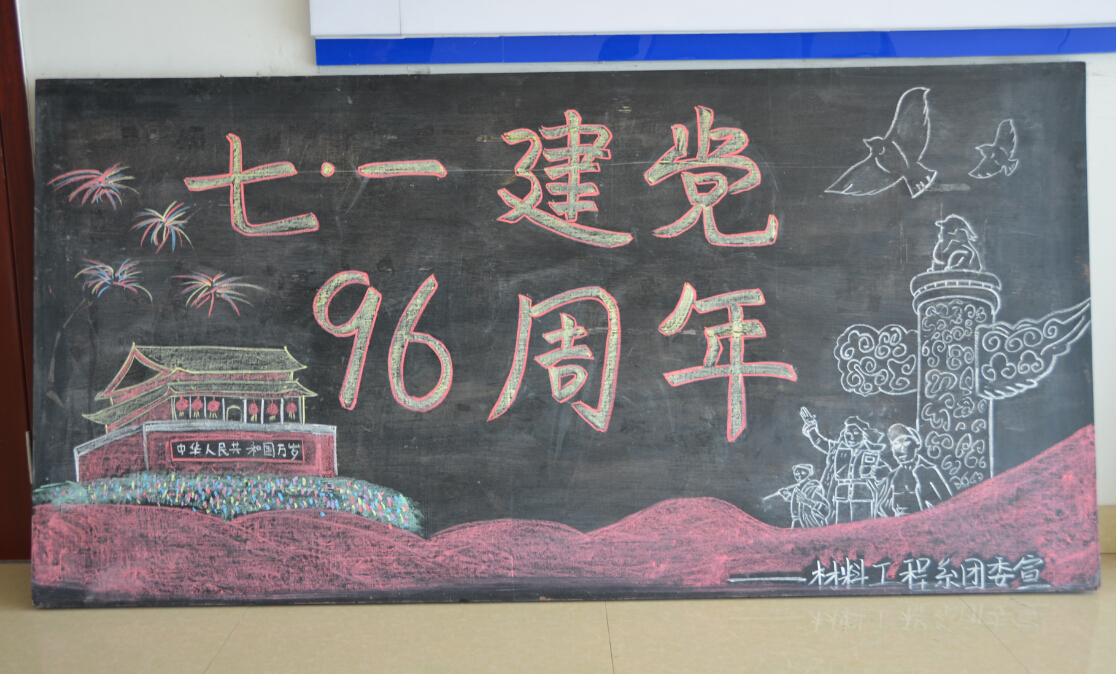 七·一建党
96周年
中华人民共和国万岁
——材料工程系团委宣